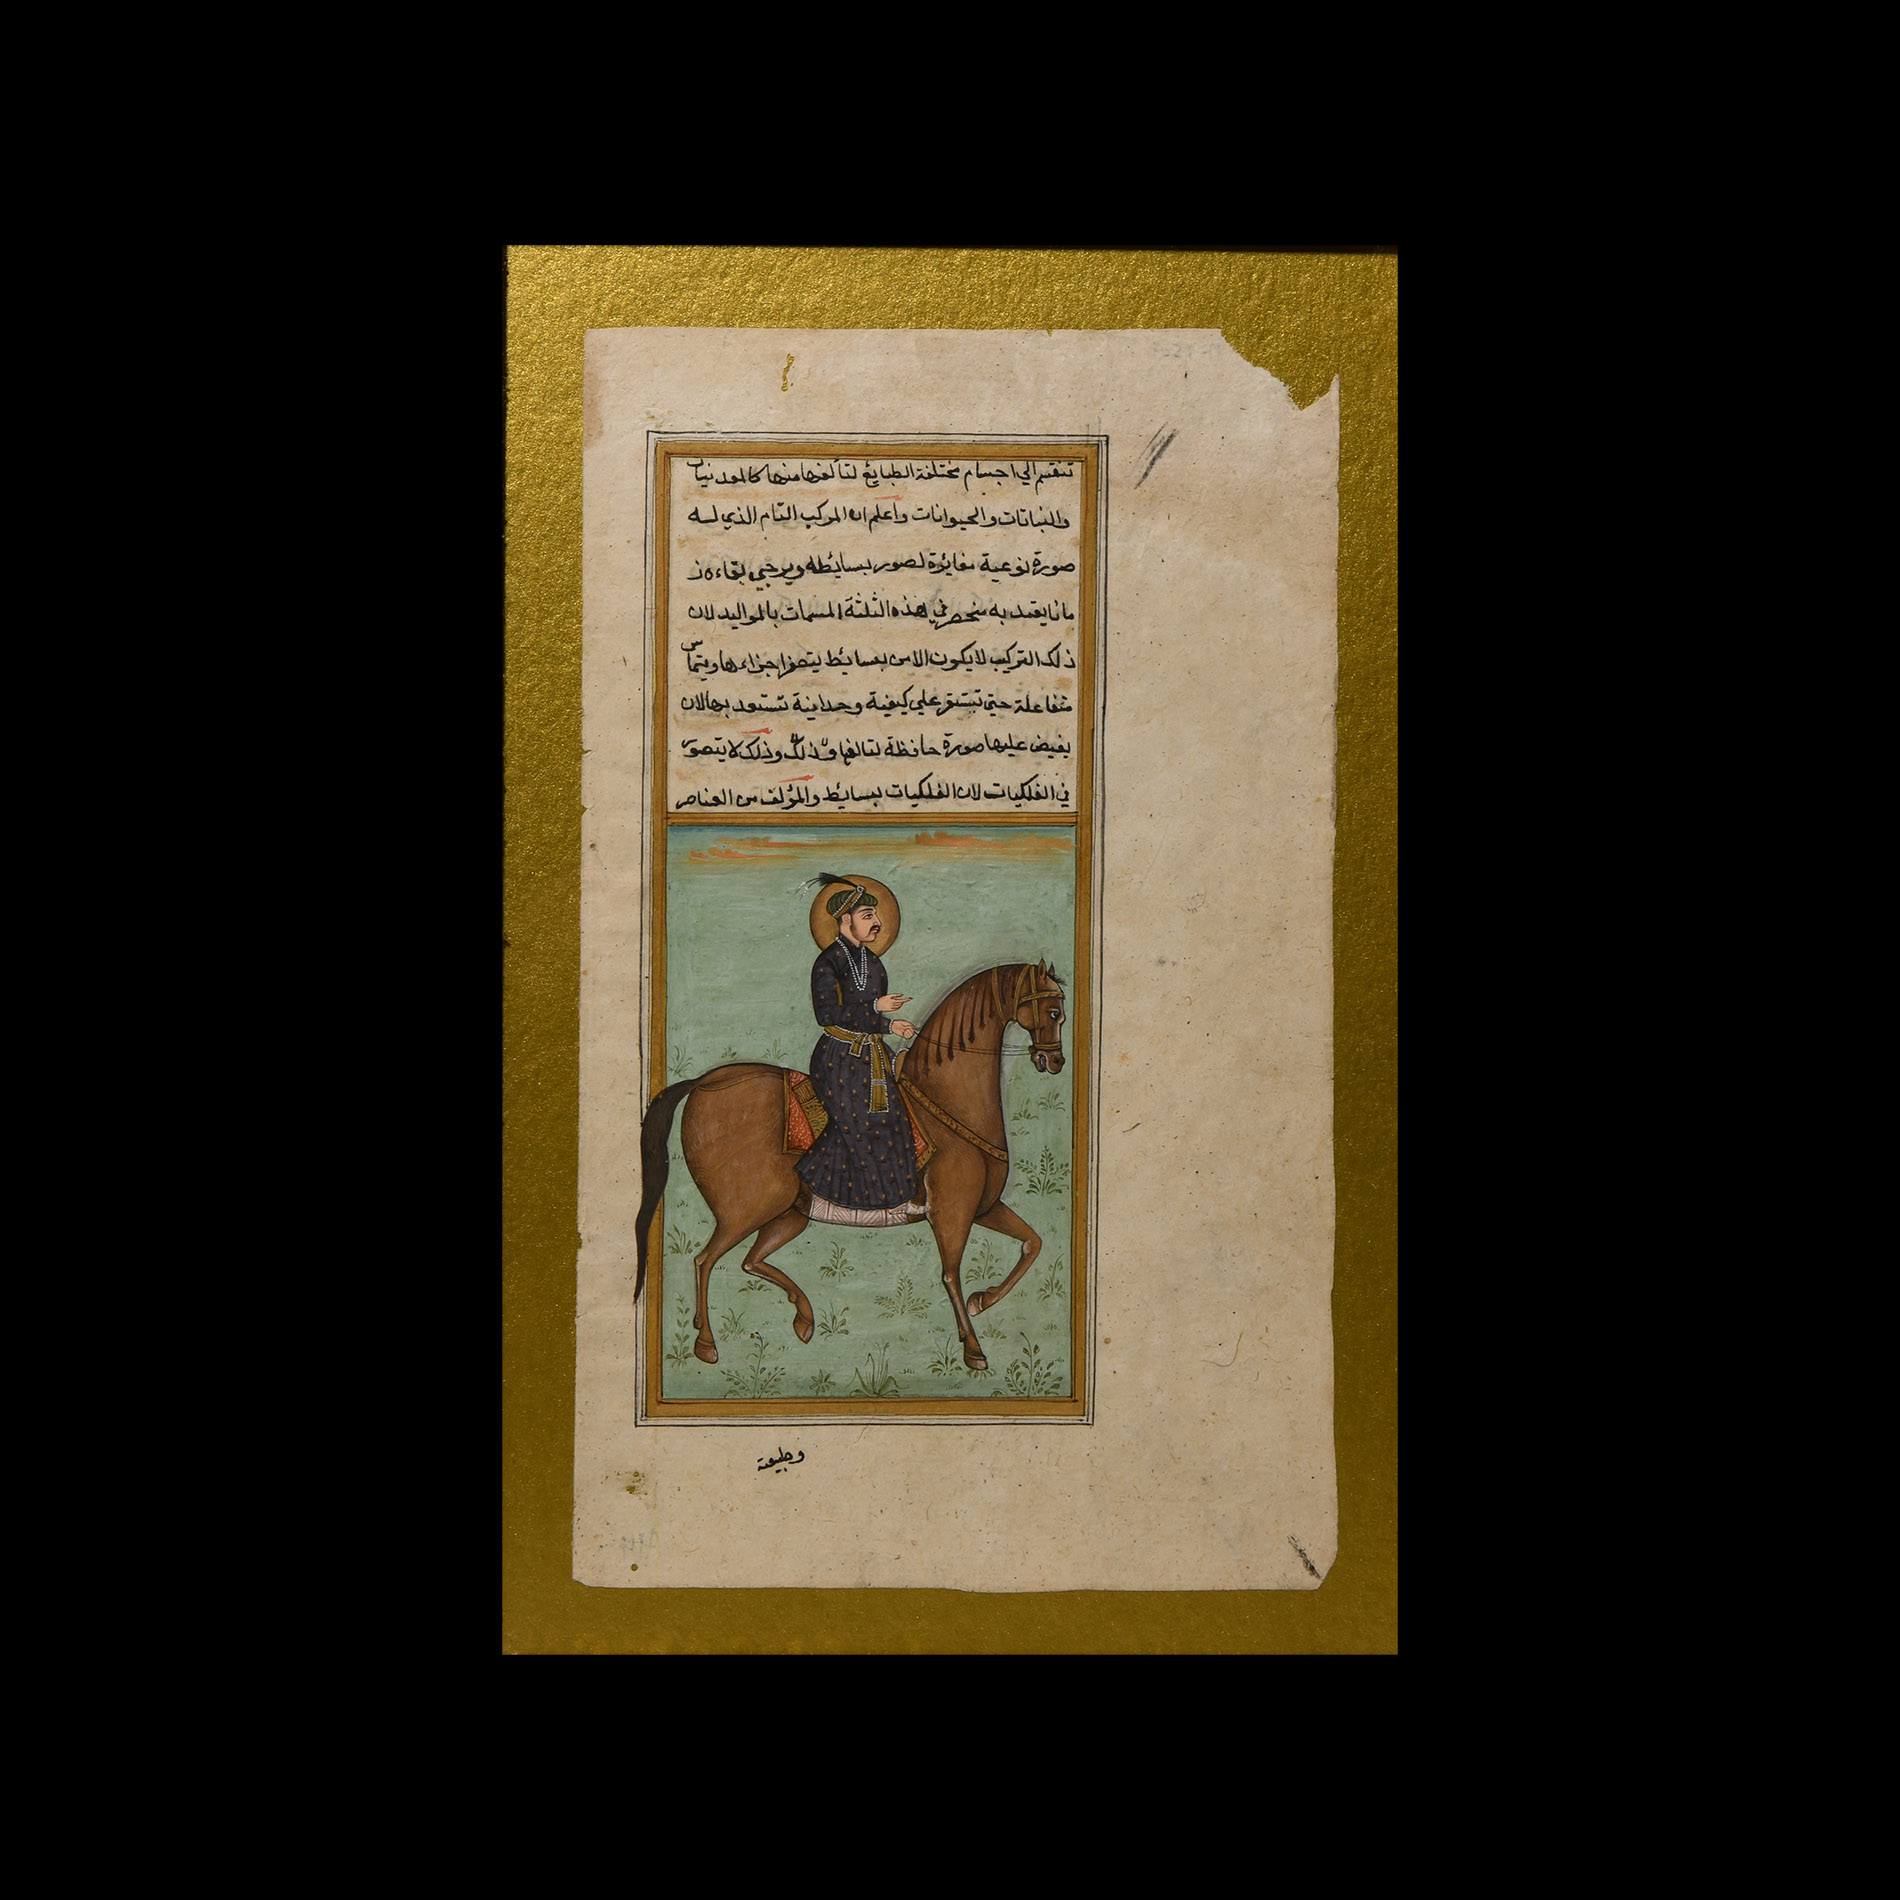 تنقسم الي اجسام مختلفة الطبايع لتألفها منها كالمعدنيات
والنباتات والحيوانات واعلم ان المركب التام الذي له
صورة نوعية مغايرة لصور بسايطه ويرجي بقاءه ز
مانا يعتد به منحصر في هذه الثلثة المسمات بالمواليد لان
ذلك التركيب لا يكون الا من بسايط يتصغر اجزاءها ويتماس
متفاعلة حتي تستقر علي كيفية وحدانية تستعد بها لان
يفيض عليها صورة حافظة لتالفها وذلك لا يتصور
في الفلكيات لان الفلكيات بسايط والمؤلف من العناصر